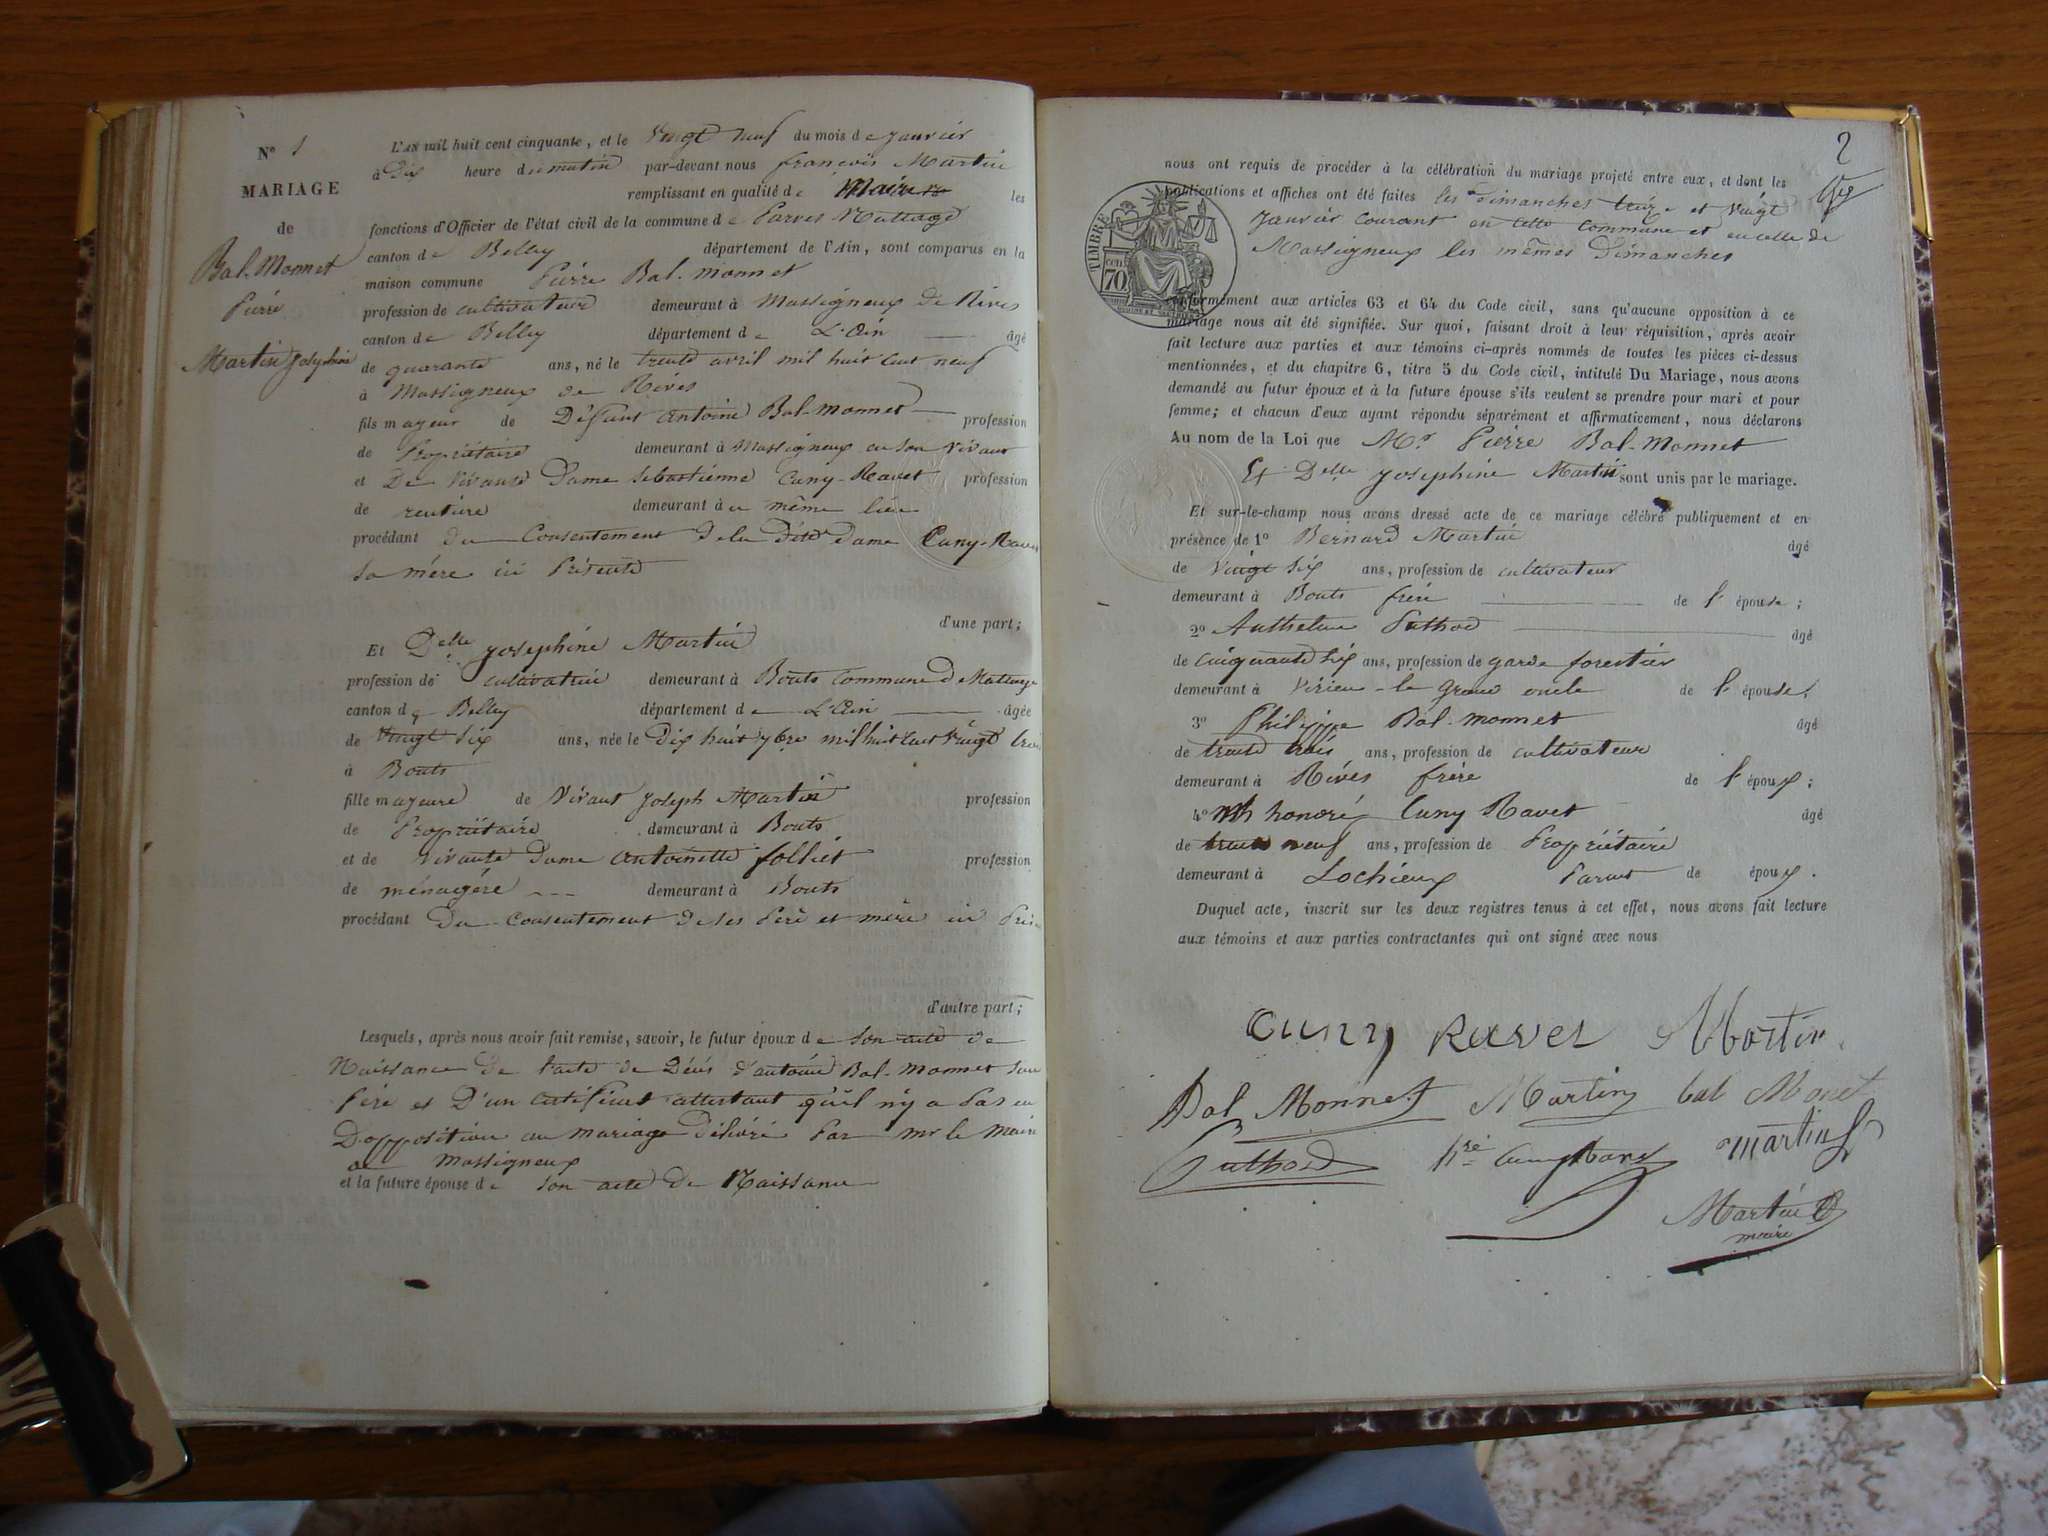 N° 1
MARIAGE
de
Bal-Monnet
Pierre
Martin Josephine
L'AN mil huit cent cinquante, et le Vingt neuf du mois de Janvier
à dix heure du matin par-devant nous françois Martin
remplissant en qualité de Maire les
fonctions d'Officier de l'état civil de la commune de Parves Nattage
canton de Belley département de l'Ain, sont comparus en la
maison commune Pierre Bal-Monnet
profession de cultivateur demeurant à Massigneux de Rives
canton de Belley département de L'Ain âgé
de quarante ans, né le trente avril mil huit cent neuf
à Massigneux de Rives
fils majeur de Défunt Antoine Bal-Monnet profession
de Propriétaire demeurant à Massigneux en son vivant
et De vivante Dame Sebastienne Cuny-Ravet profession
de rentière demeurant à u même lieu
procédant du Consentement de la dite dame Cuny-Ravet
sa mère ici Présente
d'une part;
Et Delle Josephine Martin
profession de cultivatrice demeurant à Bouts Commune de Nattage
canton de Belley département de L'Ain âgée
de vingt six ans, née le Dix huit 7bre mil huit cent vingt trois
à Bouts
fille majeure de Vivant Joseph Martin profession
de Propriétaire demeurant à Bouts
et de vivante Dame Antoinette folliet profession
de ménagère demeurant à Bouts
procédant du Consentement de ses Père et mère ici
d'autre part;
Lesquels, après nous avoir fait remise, savoir, le futur époux de son acte de
Naissance de l'acte de Décès d'antoine Bal-Monnet son
Père et D'un certificat attestant qu'il n'y a Pas eu
D'opposition au mariage délivré Par mr le Maire
de Massigneux
et la future épouse de son acte de Naissance
2
TIMBRE
70
nous ont requis de procéder à la célébration du mariage projeté entre eux, et dont les
publications et affiches ont été faites les dimanches treize et vingt
Janvier courant en cette commune et en celle de
Massigneux les mêmes Dimanches
conformément aux articles 63 et 64 du Code civil, sans qu'aucune opposition à ce
mariage nous ait été signifiée. Sur quoi, faisant droit à leur réquisition, après avoir
fait lecture aux parties et aux témoins ci-après nommés de toutes les pièces ci-dessus
mentionnées, et du chapitre 6, titre 5 du Code civil, intitulé Du Mariage, nous avons
demandé au futur époux et à la future épouse s'ils veulent se prendre pour mari et pour
femme; et chacun d'eux ayant répondu séparément et affirmativement, nous déclarons
Au nom de la Loi que Mr Pierre Bal-Monnet
Et Delle Josephine Martin sont unis par le mariage.
Et sur-le-champ nous avons dressé acte de ce mariage célébré publiquement et en
présence de 1° Bernard Martin âgé
de vingt six ans, profession de cultivateur
demeurant à Bouts frère de l'épouse;
2° Anthelme Puthod âgé
de cinquante six ans, profession de garde forestier
demeurant à Virieu-le-Grand oncle de l'épouse;
3° Philippe Bal-Monnet âgé
de trente trois ans, profession de cultivateur
demeurant à Rives frère de l'époux;
4° honoré Cuny Ravet âgé
de trente neuf ans, profession de Propriétaire
demeurant à Lochieux Parent de époux.
Duquel acte, inscrit sur les deux registres tenus à cet effet, nous avons fait lecture
aux témoins et aux parties contractantes qui ont signé avec nous
Cuny Ravet Martin
Bal Monnet Martin bal Monet
Puthod hré Cuny Ravet martin
Martin
maire